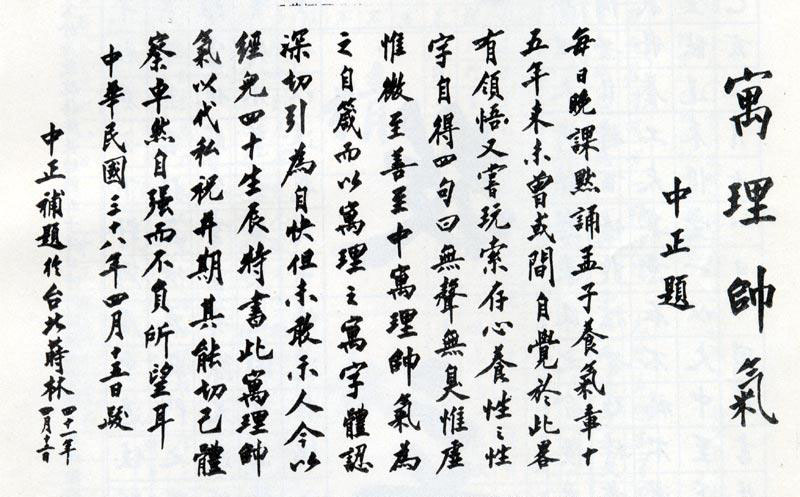 寓理帥氣
中正題
每日晚課默誦孟子養氣章十
五年來未曾或間自覺於此畧
有領悟又嘗玩索存心養性之性
字自得四句曰無聲無臭惟虛
惟微至善至中寓理帥氣為
之自箴而以寓理之寓字體認
深切引為自快但未敢示人今以
經兒四十生辰特書此寓理帥
氣以代私祝并期其能切己體
察卓然自强而不負所望耳
中華民國三十八年四月十五日跋
中正補題於台北蔣林 四十一年